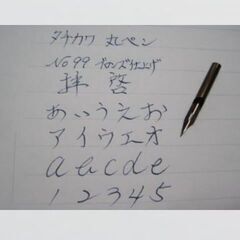 タチカワ 丸ペン
No99 ブロンズ仕上げ
拝 啓
あいうえお
アイウエオ
abcde
12345